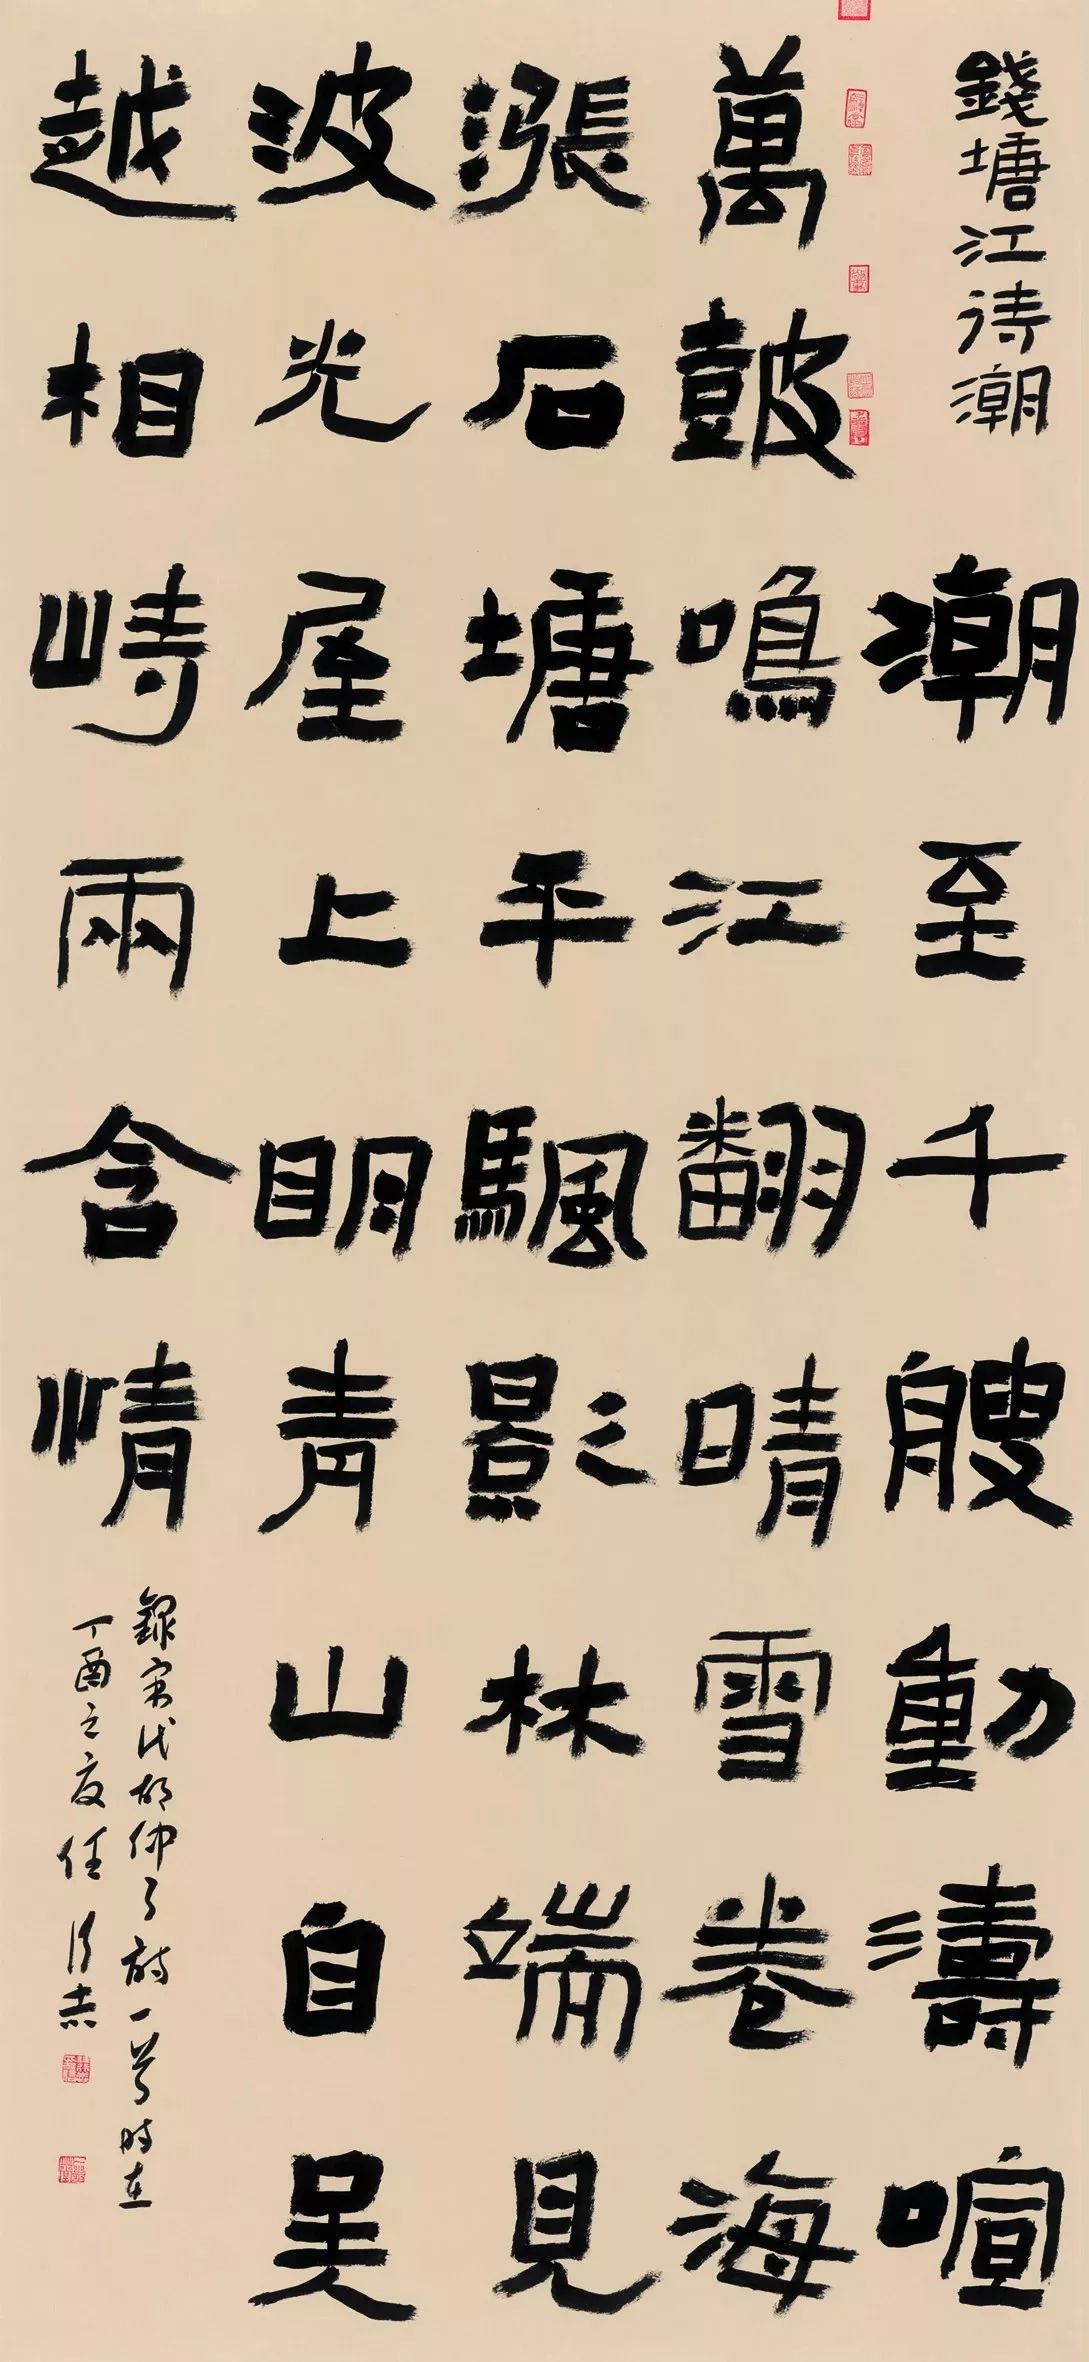 錢塘江待潮
潮至千艘動濤喧
萬皷鳴江翻晴雪卷海
漲石塘平颿影林端見
波光屋上眀青山自吴
越相峙兩含情
錄宋代胡仲弓詩一首時在
丁酉之夏任